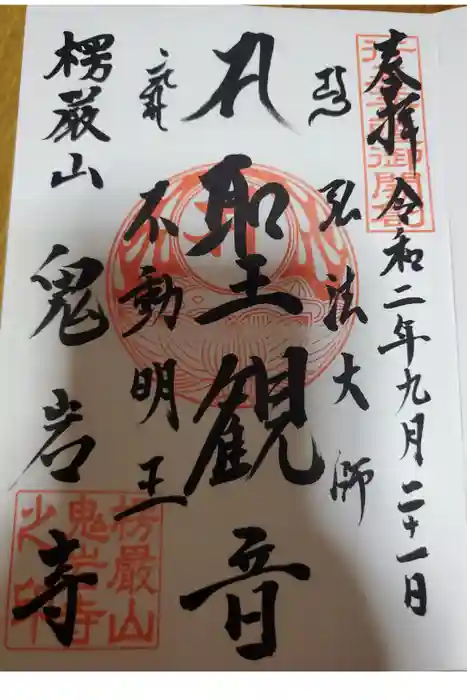 奉拝 令和二年九月二十一日
弘法大師
聖王観音
不動明王
楞厳山 鬼岩寺
楞嚴山
鬼岩寺
之印